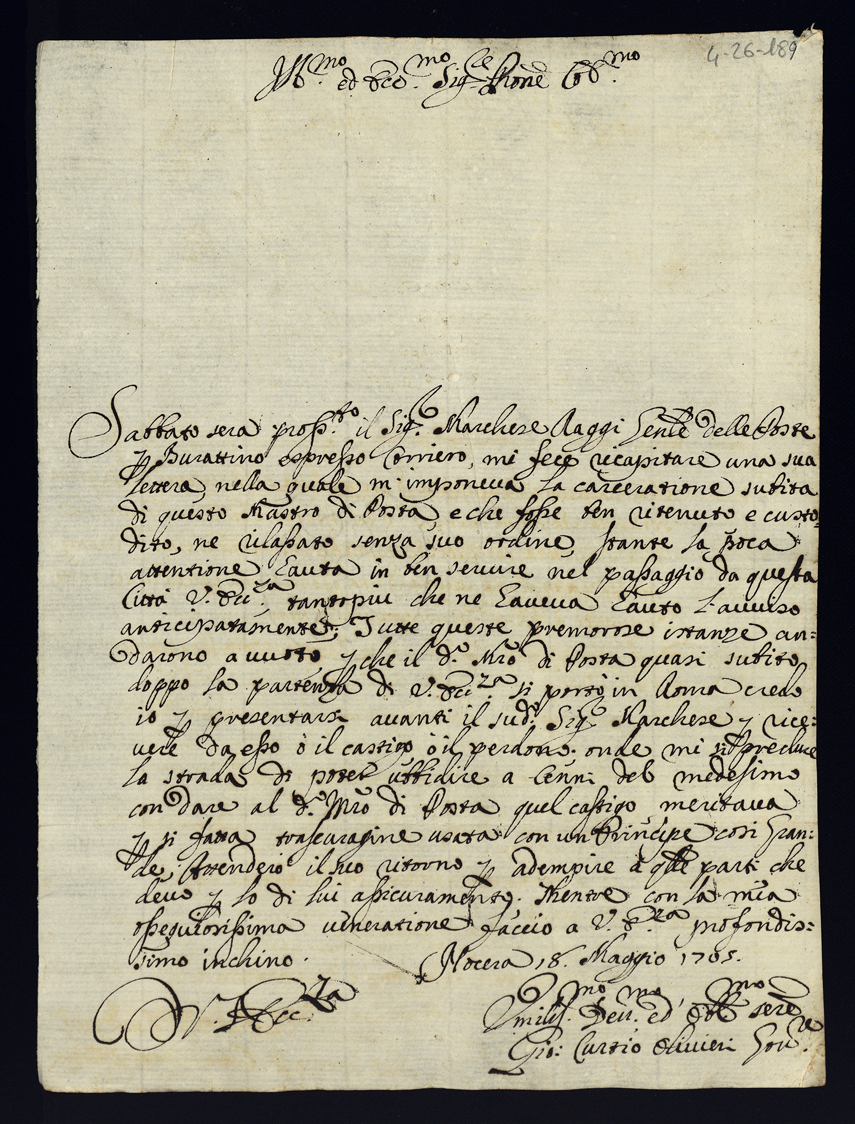 4-26-189
Ill.mo ed Ecc.mo Sig.re Prone Col.mo
Sabbato sera pross.to il Sig.r Marchese Raggi Genle delle Poste
p Burattino espresso Corriero, mi fece ricapitare una sua
lettera, nella quale m'imponeva la carceratione subita
di questo Mastro di Posta e che fosse ben ritenuto e custo=
dito, ne rilassato senza suo ordine, stante la poca
attentione hauta in ben servire nel passaggio da questa
Città V. Ecc.za tantopiu che ne haveva hauto l'avviso
anticipatamente. Tutte queste premorose istanze an=
darono a vuoto p che il d.o Mro di Posta quasi subito
doppo la partenza di V. Ecc.za si portò in Roma credo
io p presentarsi avanti il sud.o Sig.r Marchese p rice=
vere da esso ò il castigo ò il perdono. onde mi si preclude
la strada di poter ubbidire a Cenni del medesimo
con dare al d.o Mro di Posta quel castigo meritava
p si fatta trascuragine usata con un Principe così Gran=
de, Attenderò il suo ritorno p adempire à qlle parti che
devo p lo di lui assicuramento. Mentre con la mia
ossequiosissima veneratione faccio a V. E.za profondis=
simo inchino.
Nocera 18. Maggio 1705.
D. V. Ecc.za
Umiliss.mo Dev.mo ed Obl.mo sere
Gio: Curtio Olivieri Gov.re